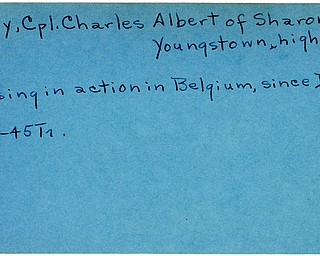 y, Cpl. Charles Albert of Sharon
Youngstown, high
sing in action in Belgium, since
-45 Tr.